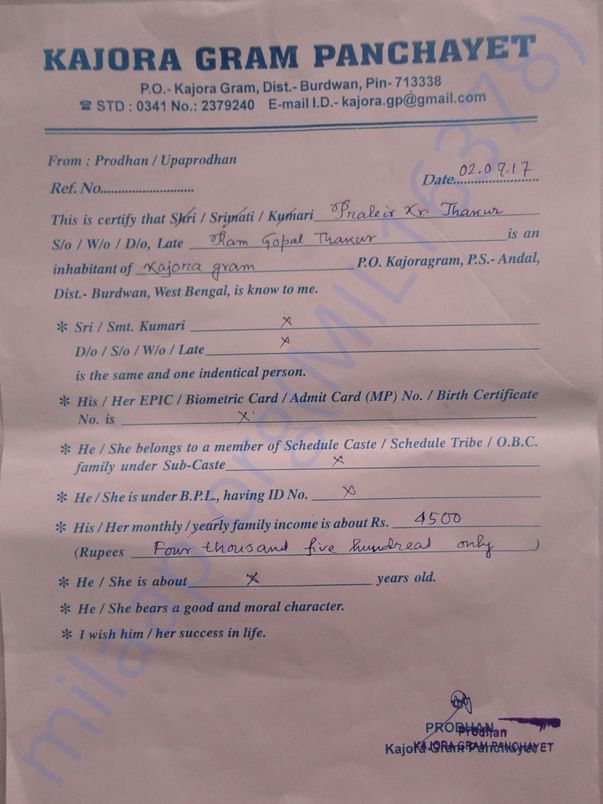 KAJORA GRAM PANCHAYET
P.O.- Kajora Gram, Dist.- Burdwan, Pin- 713338
☎ STD : 0341 No.: 2379240 E-mail I.D.- kajora.gp@gmail.com
From : Prodhan / Upaprodhan
Ref. No...........................
Date 02.09.17
This is certify that Shri / Srimati / Kumari Prabir Kr. Thakur
S/o / W/o / D/o, Late Ram Gopal Thakur is an
inhabitant of Kajora gram P.O. Kajoragram, P.S.- Andal,
Dist.- Burdwan, West Bengal, is know to me.
* Sri / Smt. Kumari x
D/o / S/o / W/o / Late x
is the same and one indentical person.
* His / Her EPIC / Biometric Card / Admit Card (MP) No. / Birth Certificate
No. is x
* He / She belongs to a member of Schedule Caste / Schedule Tribe / O.B.C.
family under Sub-Caste x
* He / She is under B.P.L., having ID No. x
* His / Her monthly / yearly family income is about Rs. 4500
(Rupees Four thousand five hundread only )
* He / She is about x years old.
* He / She bears a good and moral character.
* I wish him / her success in life.
PRODHAN
Prodhan
Kajora Gram Panchayet
KAJORA GRAM PANCHAYET
milaap.org(MIL16378)